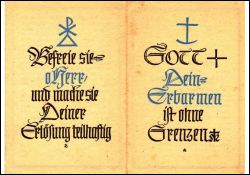 Befreie sie
o Herr,
und mache sie
Deiner
Erlösung teilhaftig
Gott
Dein
Erbarmen
ist ohne
Grenzen